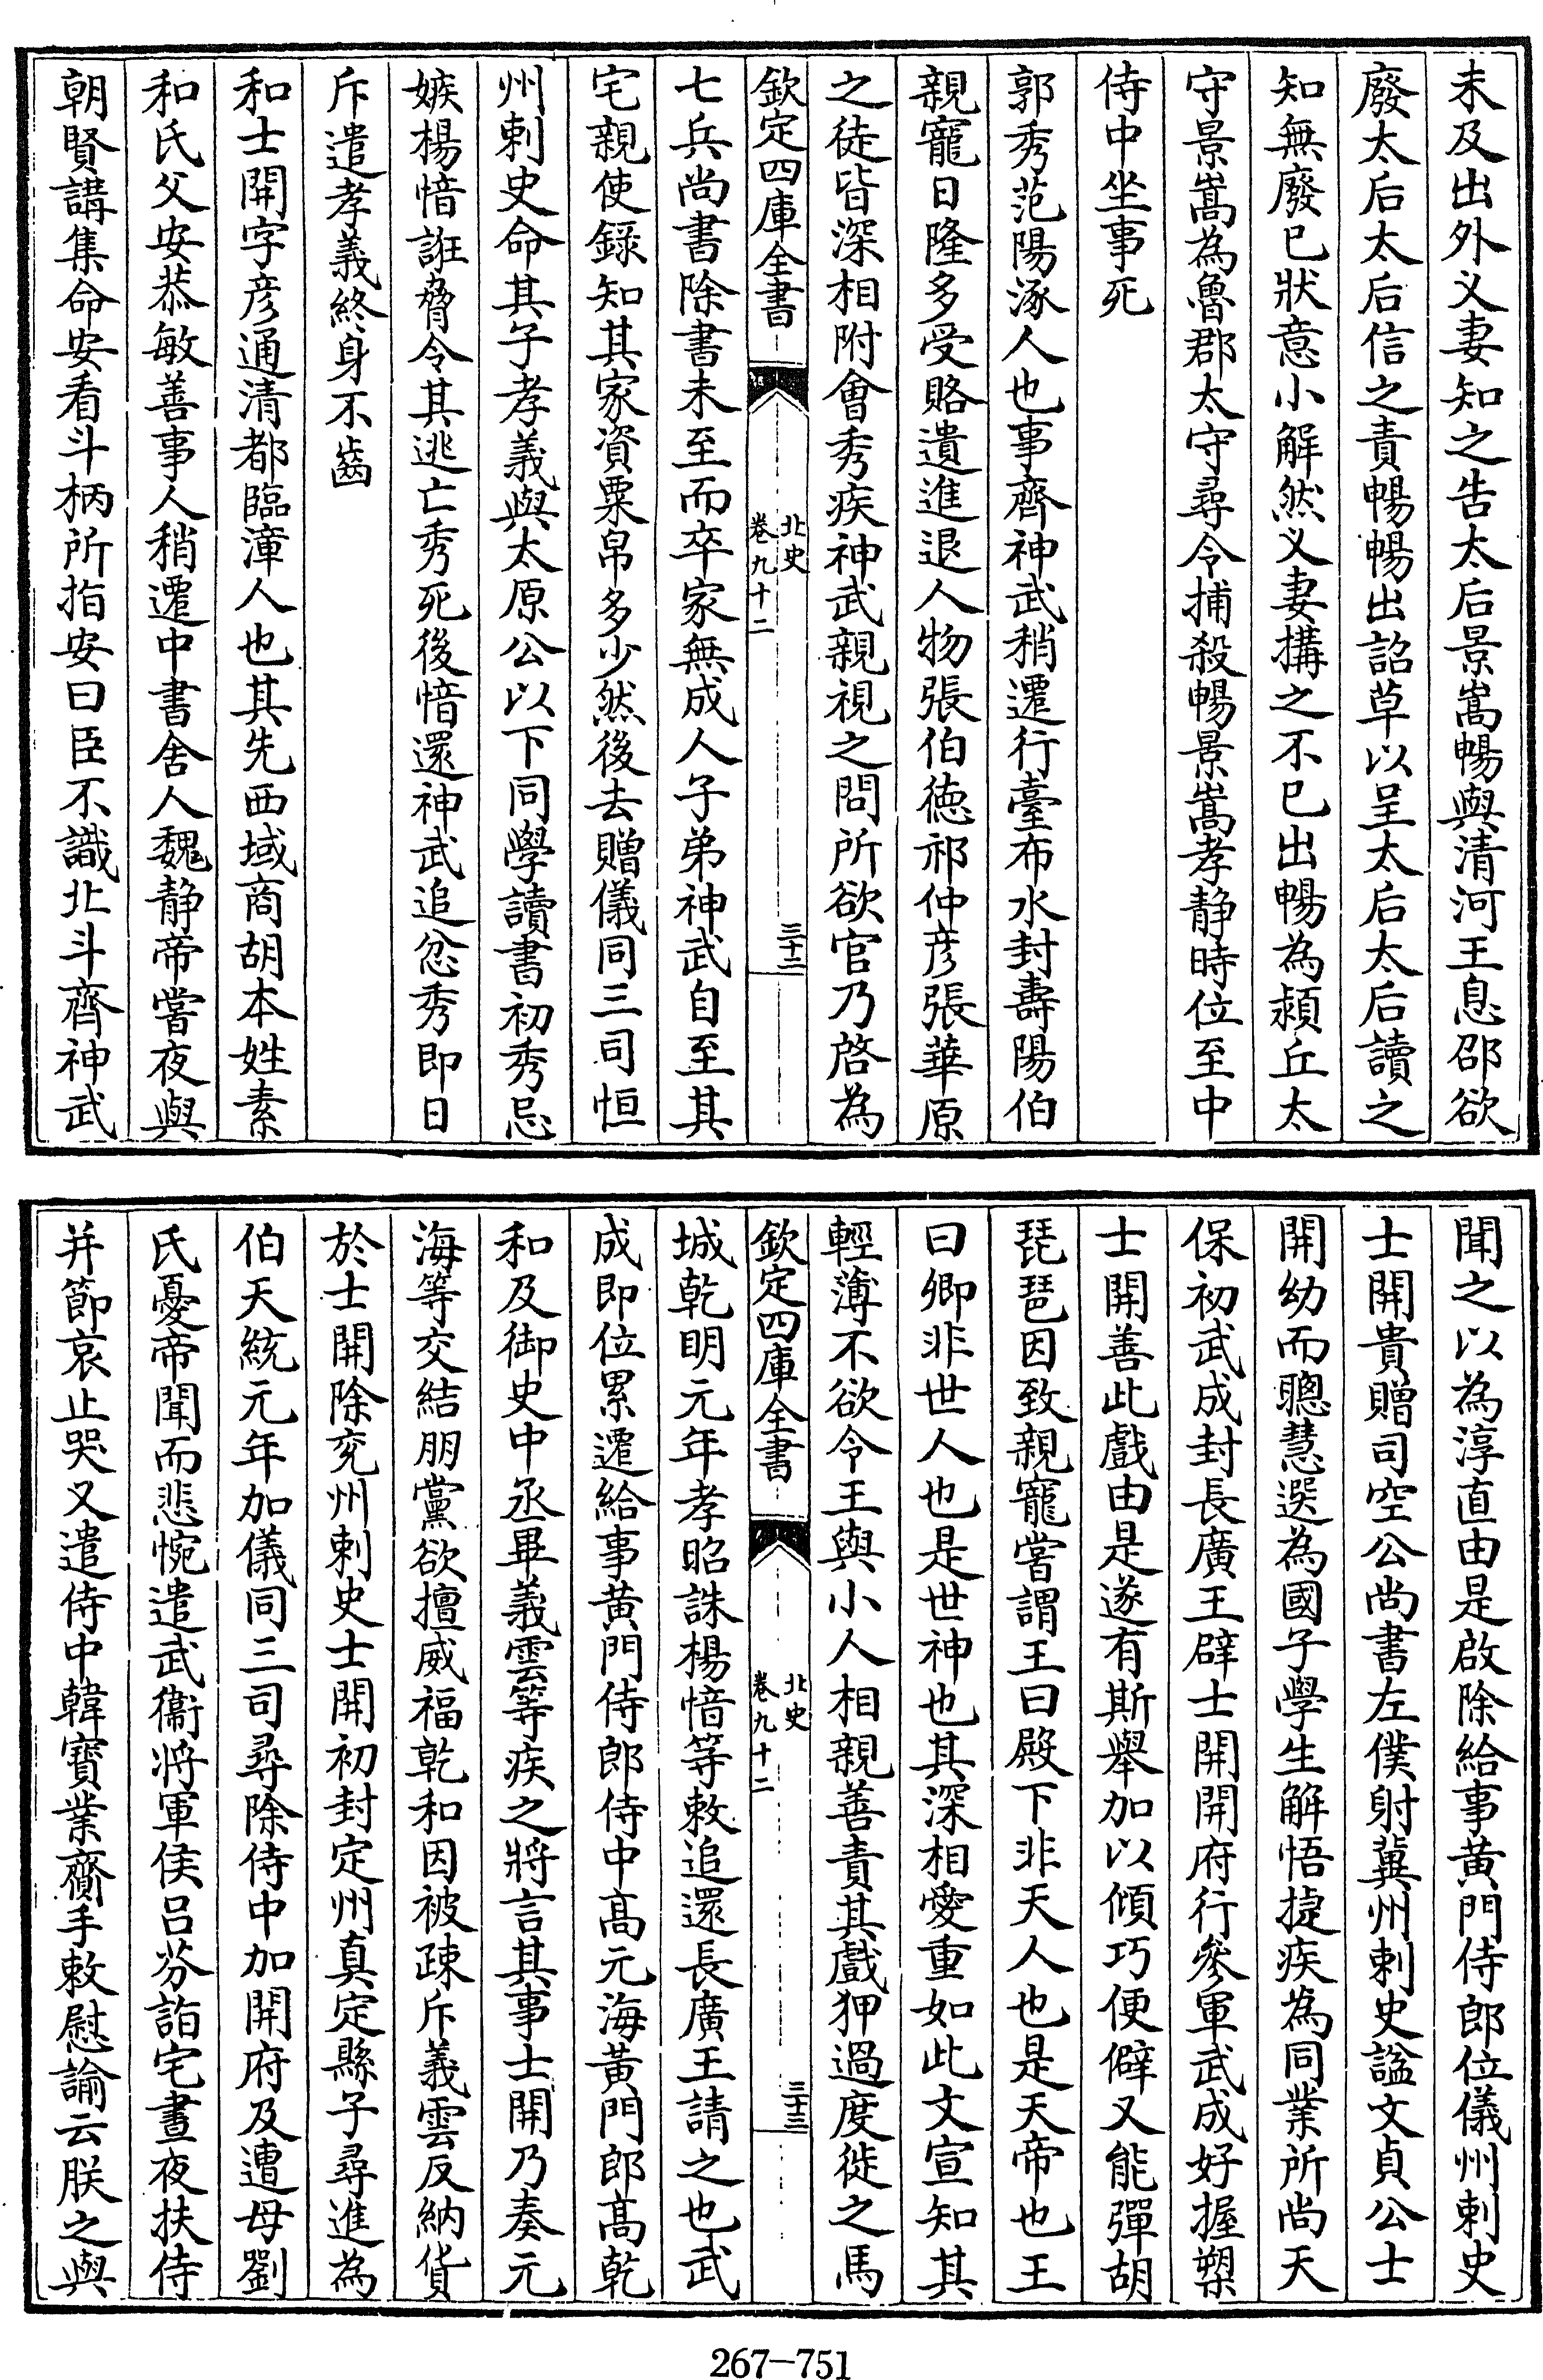 未及出外义妻知之告太后景嵩暢與清河王息邵欲
廢太后太后信之責暢暢出詔草以呈太后太后讀之
知無廢已狀意小解然义妻搆之不已出暢為潁丘太
守景嵩為魯郡太守尋令捕殺暢景嵩孝静時位至中
侍中坐事死
郭秀范陽涿人也事齊神武稍遷行臺布水封壽陽伯
親寵日隆多受賂遺進退人物張伯徳祁仲彦張華原
之徒皆深相附會秀疾神武親視之問所欲官乃啓為
欽定四庫全書
北史
卷九十二
三十二
七兵尚書除書未至而卒家無成人子弟神武自至其
宅親使録知其家資粟帛多少然後去贈儀同三司恒
州刺史命其子孝義與太原公以下同學讀書初秀忌
嫉楊愔誑脅令其逃亡秀死後愔還神武追忿秀即日
斥遣孝義終身不齒
和士開字彦通清都臨漳人也其先西域商胡本姓素
和氏父安恭敏善事人稍遷中書舍人魏静帝嘗夜與
朝賢講集命安看斗柄所指安曰臣不識北斗齊神武
聞之以為淳直由是啟除給事黄門侍郎位儀州刺史
士開貴贈司空公尚書左僕射冀州刺史諡文貞公士
開幼而聰慧選為國子學生解悟捷疾為同業所尚天
保初武成封長廣王辟士開開府行參軍武成好握槊
士開善此戲由是遂有斯舉加以傾巧便僻又能彈胡
琵琶因致親寵嘗謂王曰殿下非天人也是天帝也王
曰卿非世人也是世神也其深相愛重如此文宣知其
輕薄不欲令王與小人相親善責其戲狎過度徙之馬
欽定四庫全書
北史
卷九十二
三十三
城乾明元年孝昭誅楊愔等敕追還長廣王請之也武
成即位累遷給事黄門侍郎侍中高元海黄門郎高乾
和及御史中丞畢義雲等疾之將言其事士開乃奏元
海等交結朋黨欲擅威福乾和因被疎斥義雲反納貨
於士開除兖州刺史士開初封定州真定縣子尋進為
伯天統元年加儀同三司尋除侍中加開府及遭母劉
氏憂帝聞而悲惋遣武衞將軍侯吕芬詣宅晝夜扶侍
并節哀止哭又遣侍中韓寶業齎手敕慰諭云朕之與
267-751